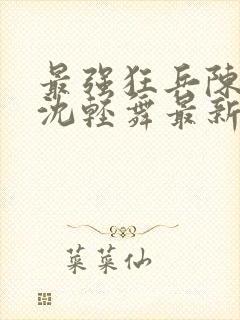 最强狂兵陈
沈轻舞最新
菜菜仙